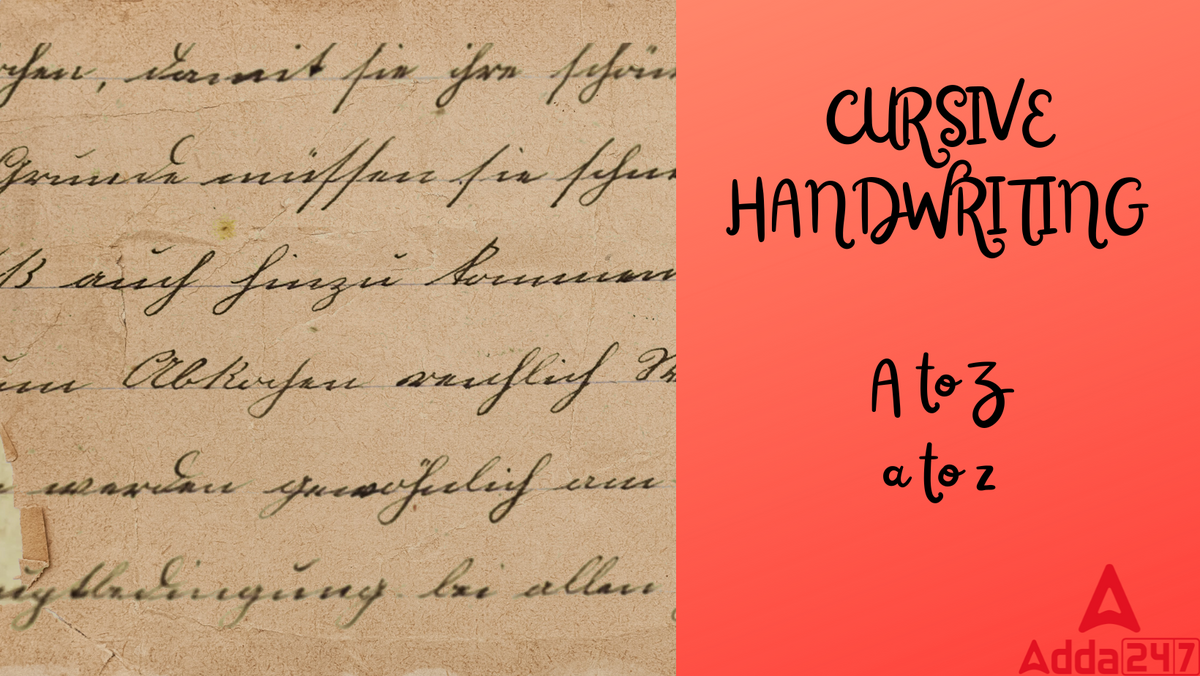 chen, damit sie ihre schön
Grunde müssen sie schne
ß auch hinzu kommen
um Abkochen reichlich
werden gewöhnlich am
uptbedingung bei allen
CURSIVE
HANDWRITING
A to Z
a to z
Adda247